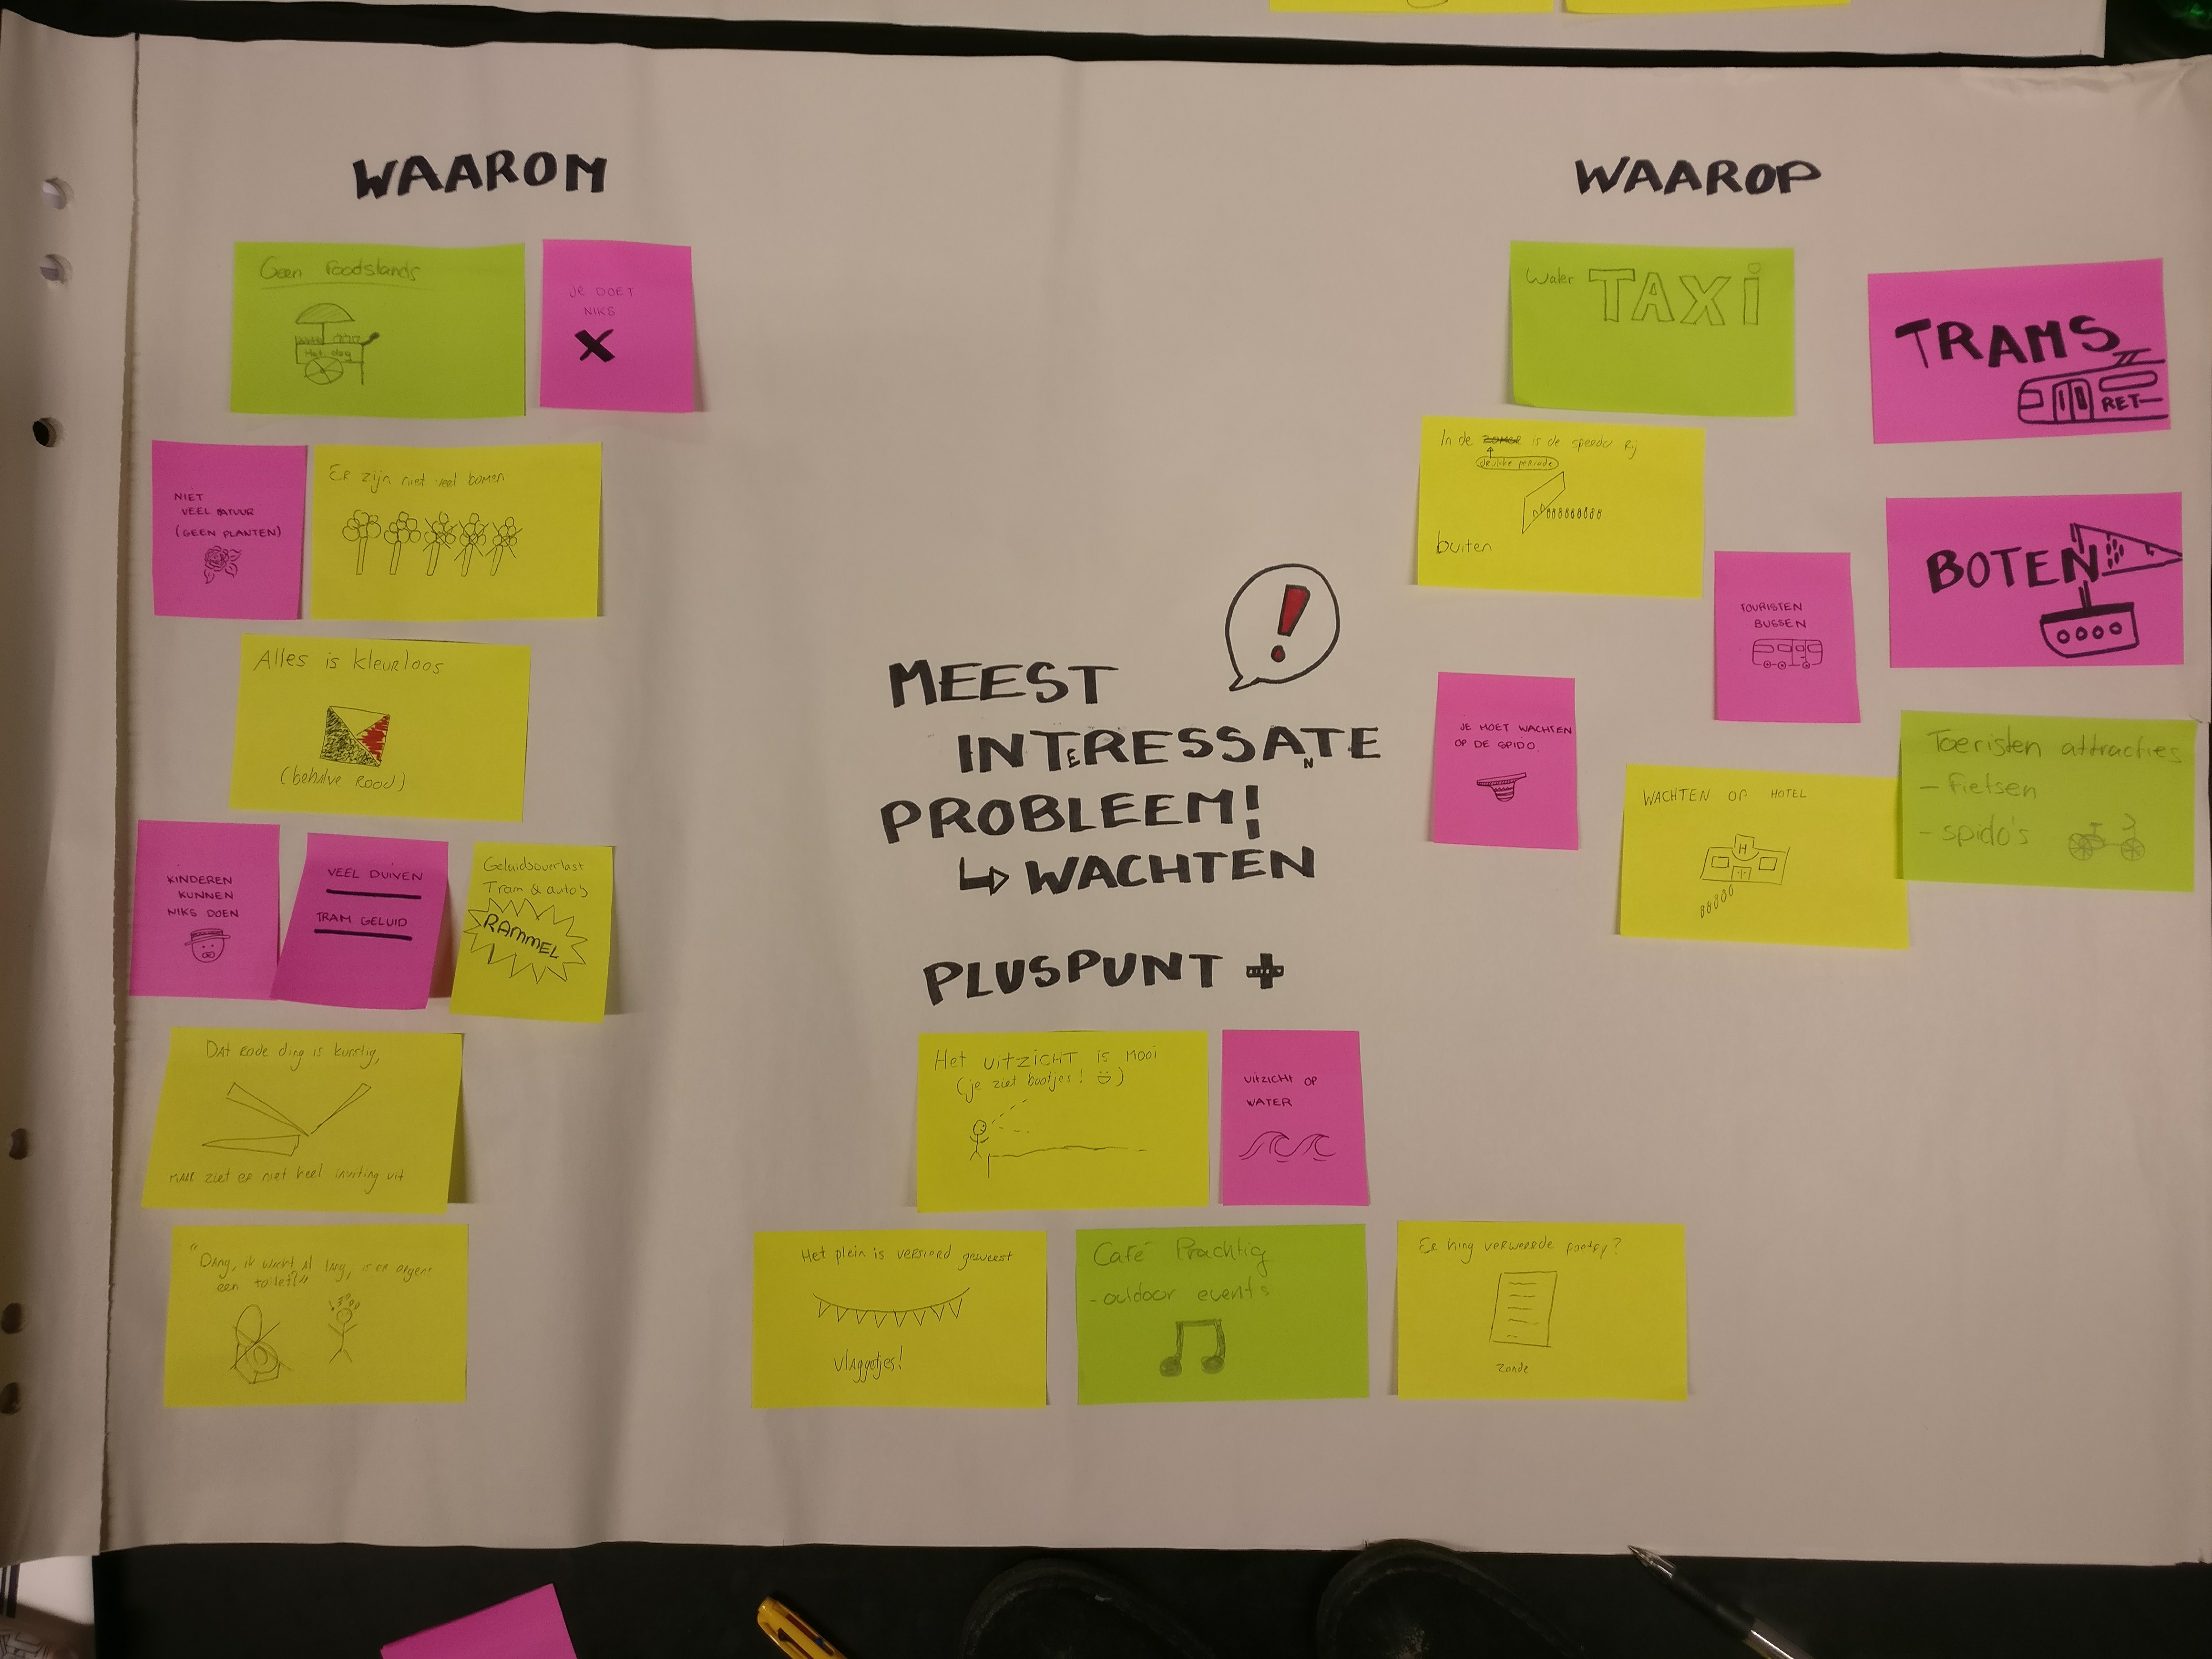 WAAROM
Geen foodstands
Hot dog
JE DOET
NIKS
NIET
VEEL NATUUR
(GEEN PLANTEN)
Er zijn niet veel bomen
Alles is kleurloos
(behalve ROOD)
KINDEREN
KUNNEN
NIKS DOEN
VEEL DUIVEN
TRAM GELUID
Geluidsoverlast
Tram & auto's
RAMMEL
DAT rode ding is kunstig,
MAAR ziet er niet heel inviting uit
"Dang, ik wacht al lang, is er ergens
een toilet?"
MEEST
INTERESSANTE
PROBLEEM!
WACHTEN
!
PLUSPUNT +
Het UITZICHT is MOOI
(je ziet bootjes! )
UITZICHT OP
WATER
Het plein is versierd geweest
vlaggetjes!
Café Prachtig
- outdoor events
Er hing verweerde poetry?
zonde
WAAROP
Water TAXi
TRAMS
RET
In de zomer is de speedo rij
drukke periode
buiten
BOTEN
TOURISTEN
BUSSEN
JE MOET WACHTEN
OP DE SPIDO.
WACHTEN OP HOTEL
H
Toeristen attracties
- fietsen
- spido's